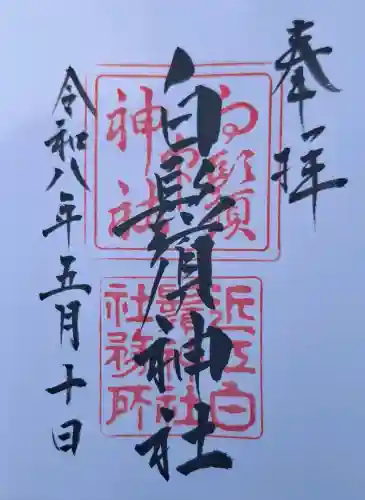 奉拝
白鬚神社
令和八年五月十日
近江白
鬚神社
社務所